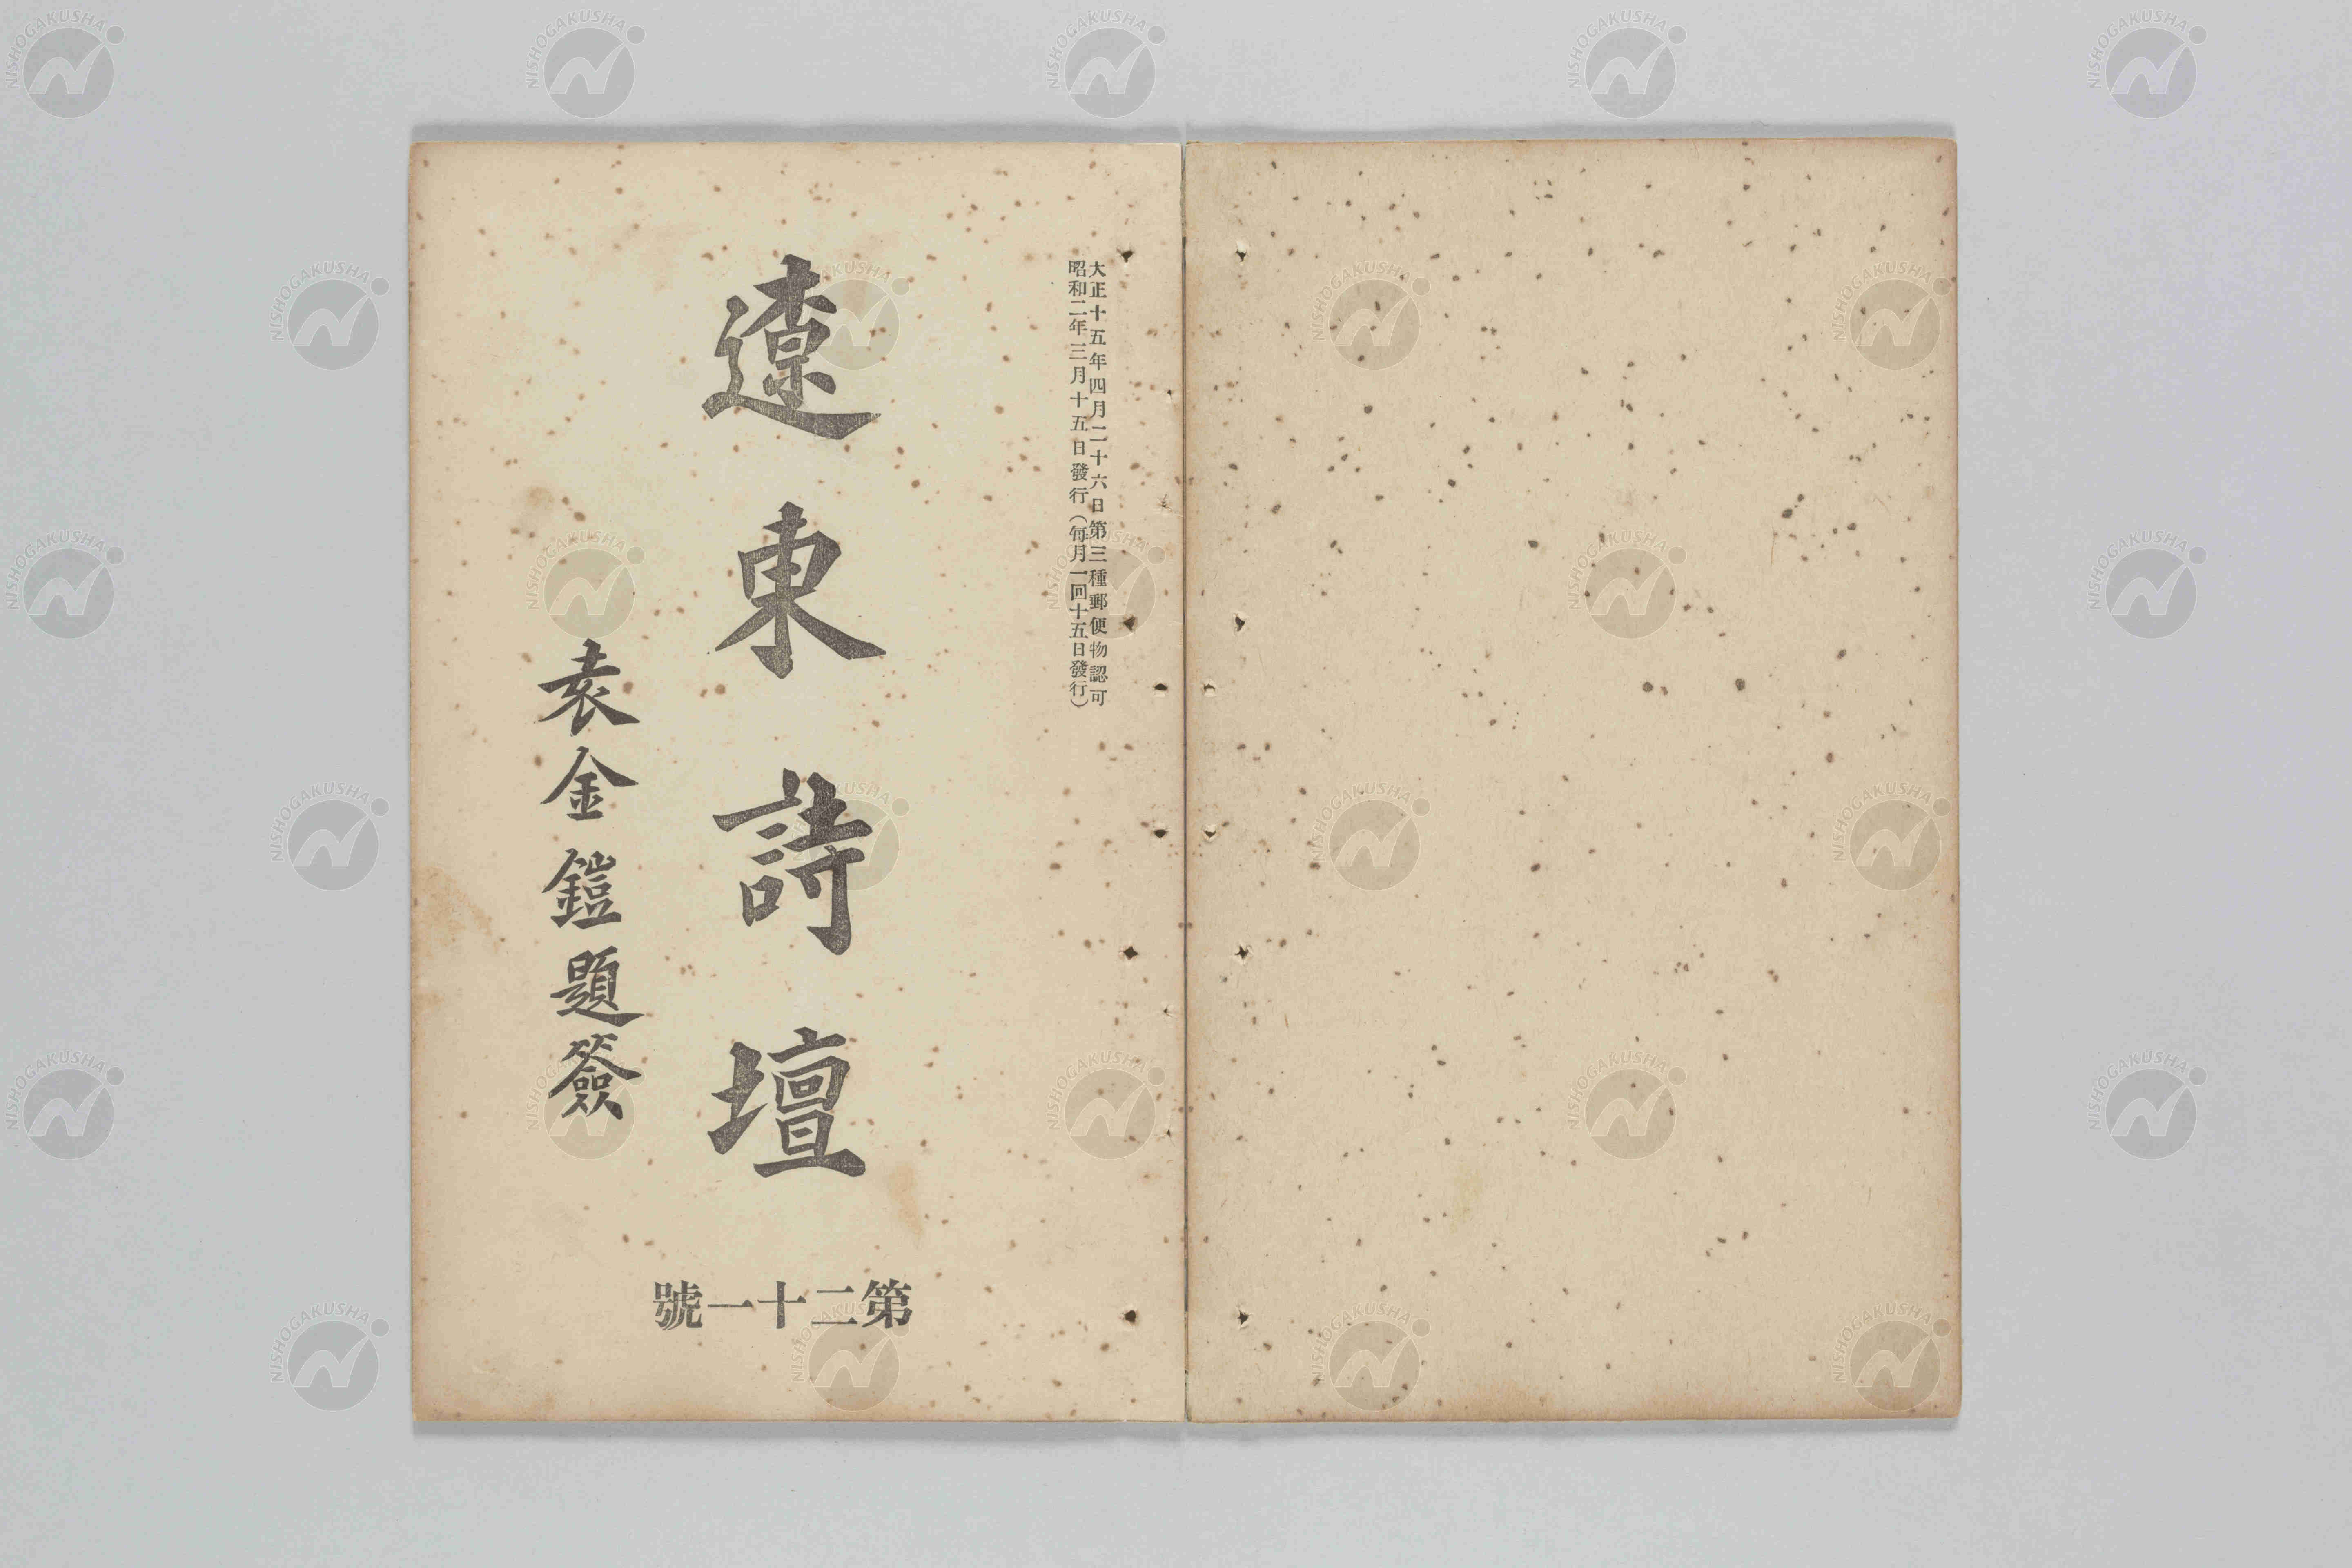 大正十五年四月二十六日第三種郵便物認可
昭和二年三月十五日發行(每月一回十五日發行)
遼東詩壇
袁金鎧題簽
第二十一號
NISHOGAKUSHA